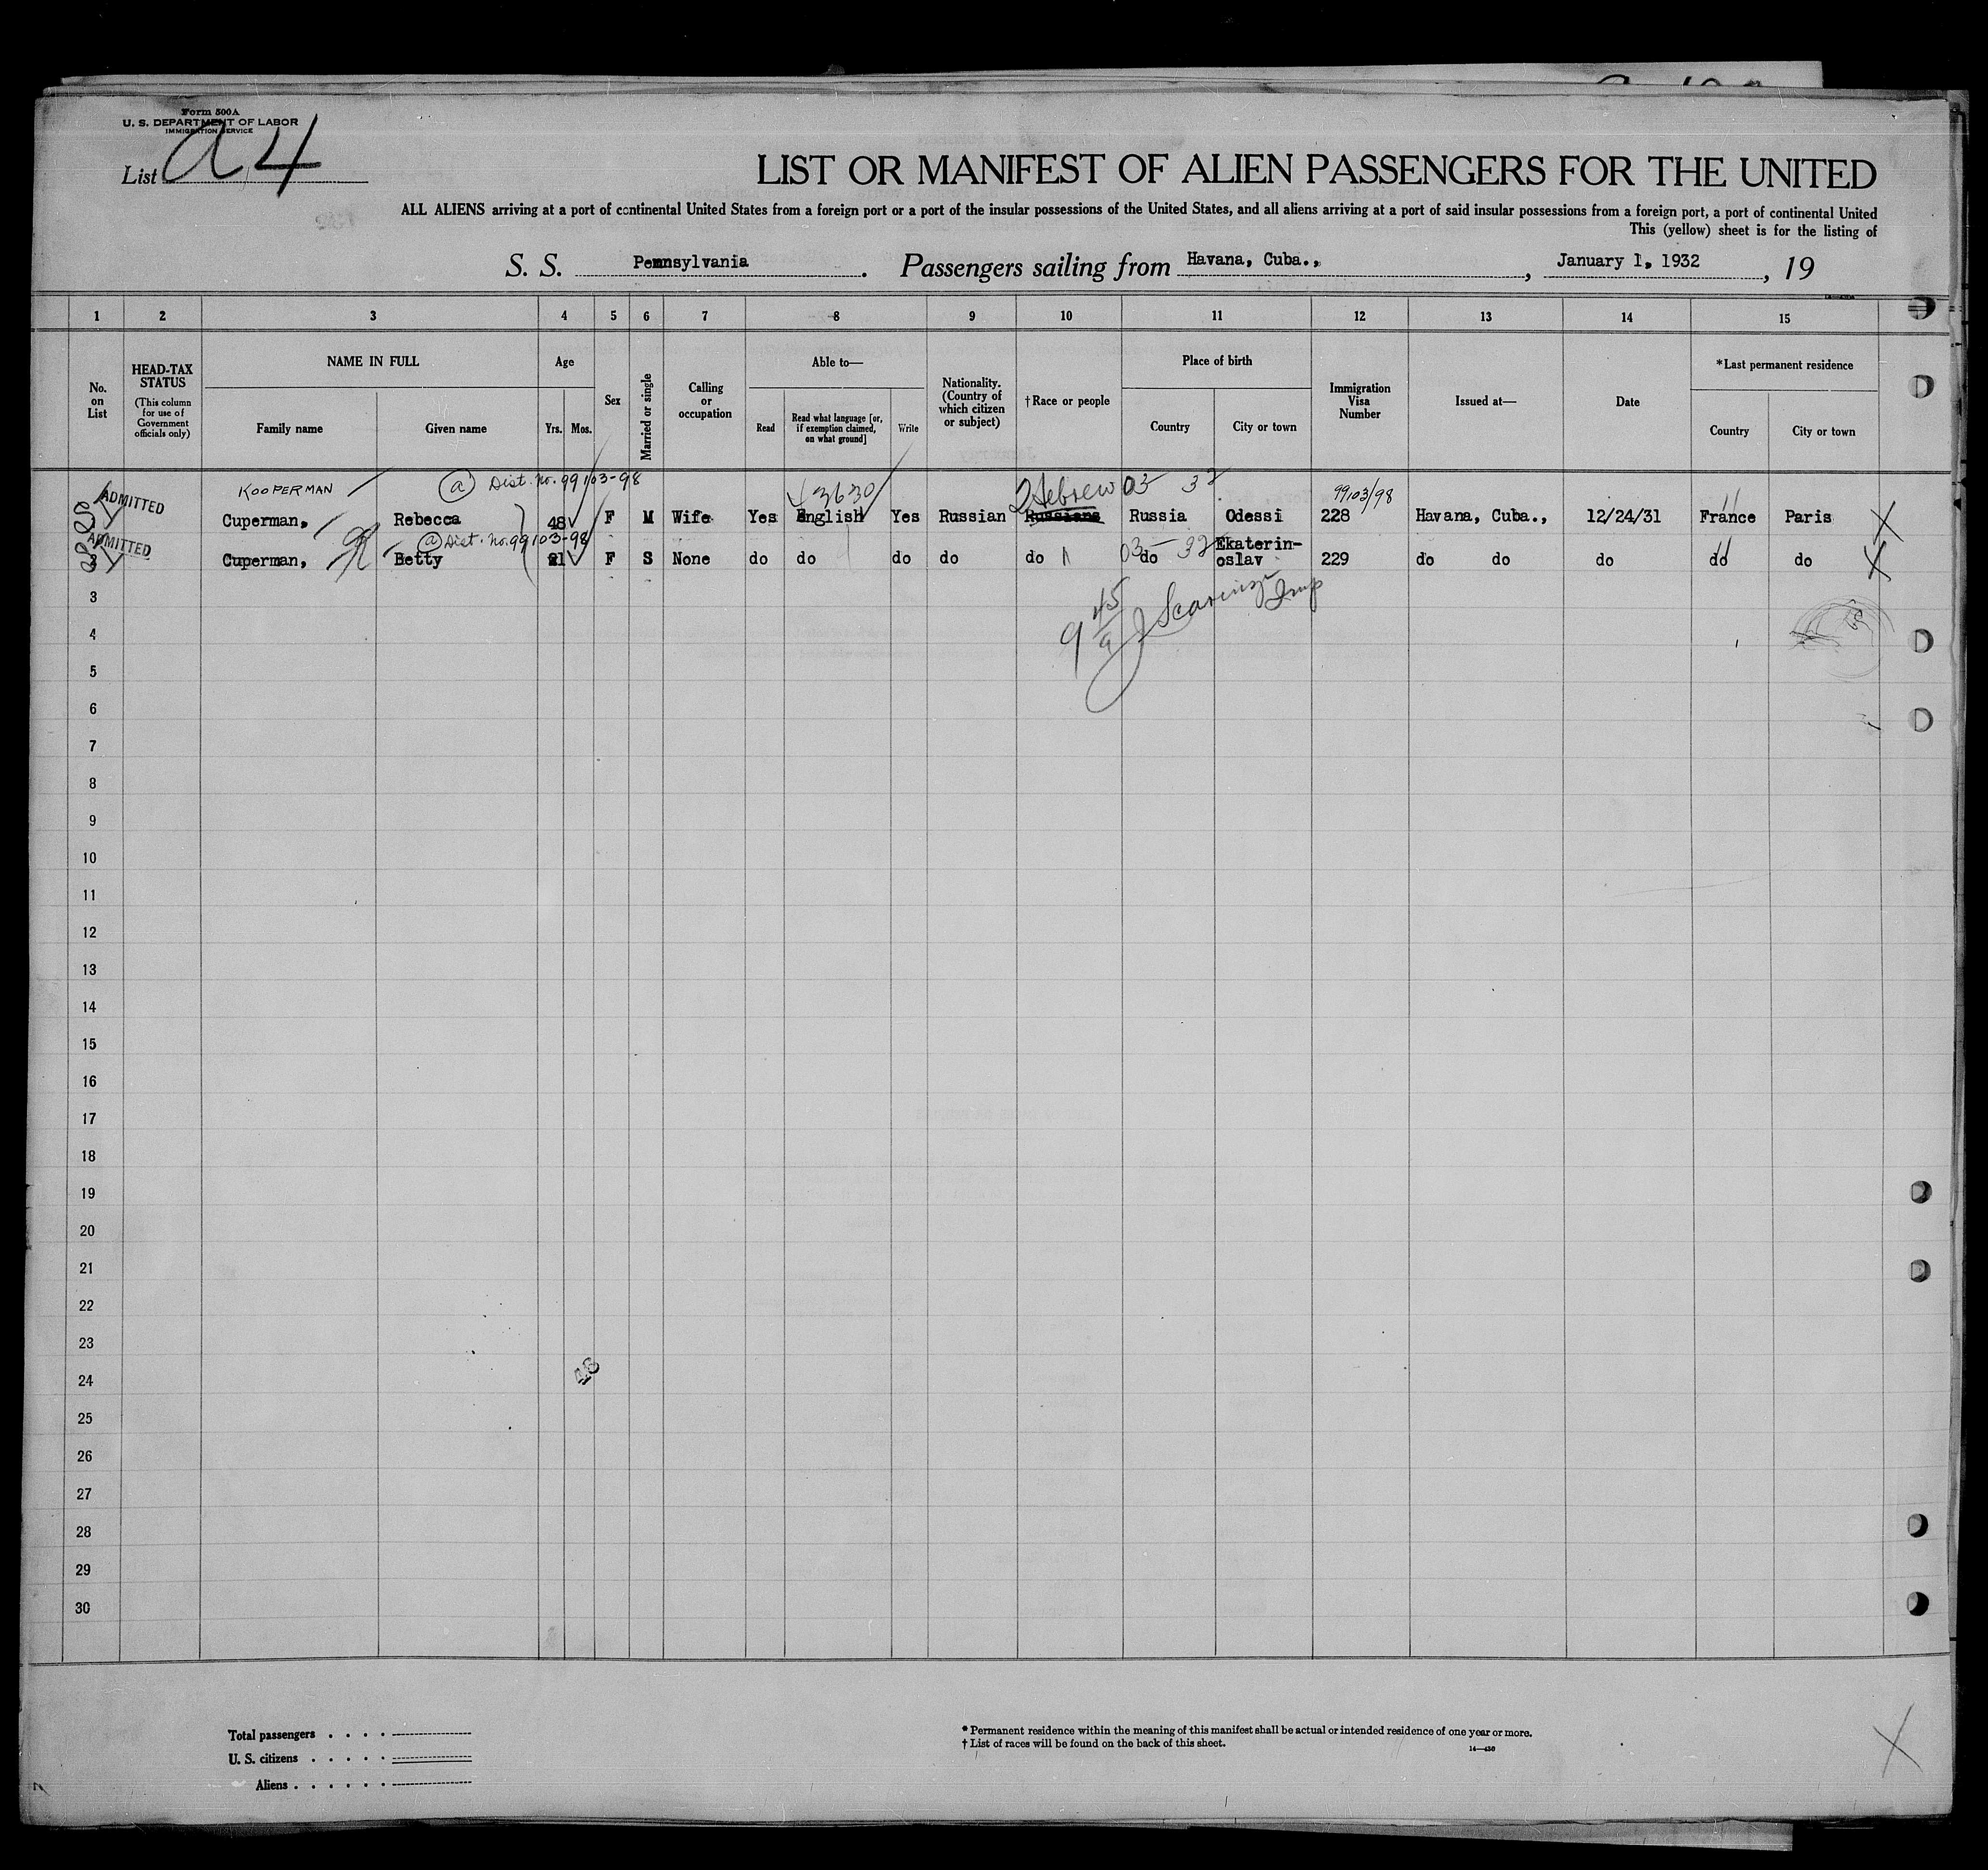 Form 500A
U. S. DEPARTMENT OF LABOR
IMMIGRATION SERVICE
List A4
LIST OR MANIFEST OF ALIEN PASSENGERS FOR THE UNITED
ALL ALIENS arriving at a port of continental United States from a foreign port or a port of the insular possessions of the United States, and all aliens arriving at a port of said insular possessions from a foreign port, a port of continental United
This (yellow) sheet is for the listing of
S. S. Pennsylvania. Passengers sailing from Havana, Cuba., , January 1, 1932, 19
1 2 3 4 5 6 7 8 9 10 11 12 13 14 15
No. on List
HEAD-TAX STATUS
(This column for use of Government officials only)
NAME IN FULL
Family name Given name
Age
Yrs. Mos.
Sex
Married or single
Calling or occupation
Able to—
Read Read what language [or, if exemption claimed, on what ground] Write
Nationality. (Country of which citizen or subject)
†Race or people
Place of birth
Country City or town
Immigration Visa Number
Issued at—
Date
*Last permanent residence
Country City or town
KOOPERMAN (a) Dist. No. 99103-98 3630 Hebrew 03 32 99103/98
ADMITTED Cuperman, Rebecca 48 F M Wife Yes English Yes Russian Russians Russia Odessi 228 Havana, Cuba., 12/24/31 France Paris
(a) Dist. No. 99103-98 03 32
ADMITTED Cuperman, Betty 21 F S None do do do do do do Ekaterin-
oslav 229 do do do do do
9 45/a
3
4
5
6
7
8
9
10
11
12
13
14
15
16
17
18
19
20
21
22
23
24
25
26
27
28
29
30
Total passengers . . . .
U. S. citizens . . . . .
Aliens . . . . . .
* Permanent residence within the meaning of this manifest shall be actual or intended residence of one year or more.
† List of races will be found on the back of this sheet.
14—430